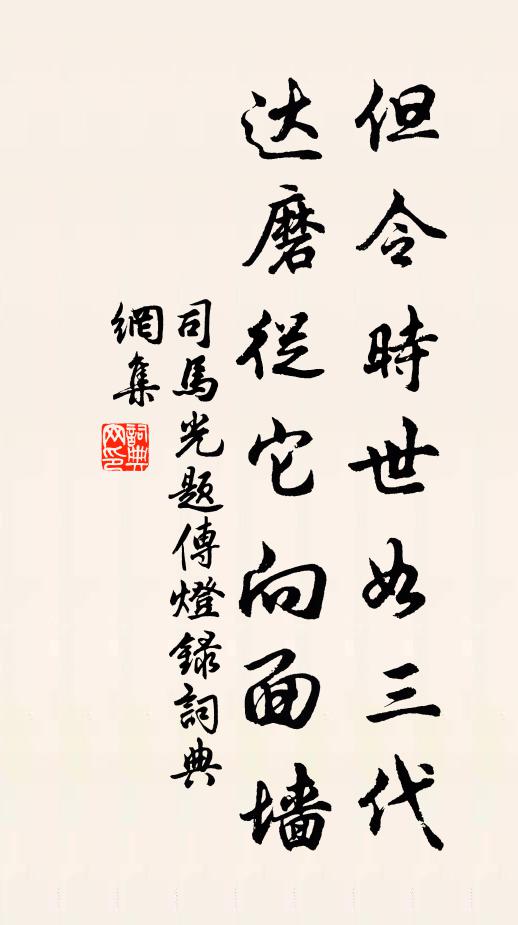 但令時世如三代
达磨從它向面墙
司馬光題傳燈録詞典
網集
詞典网印